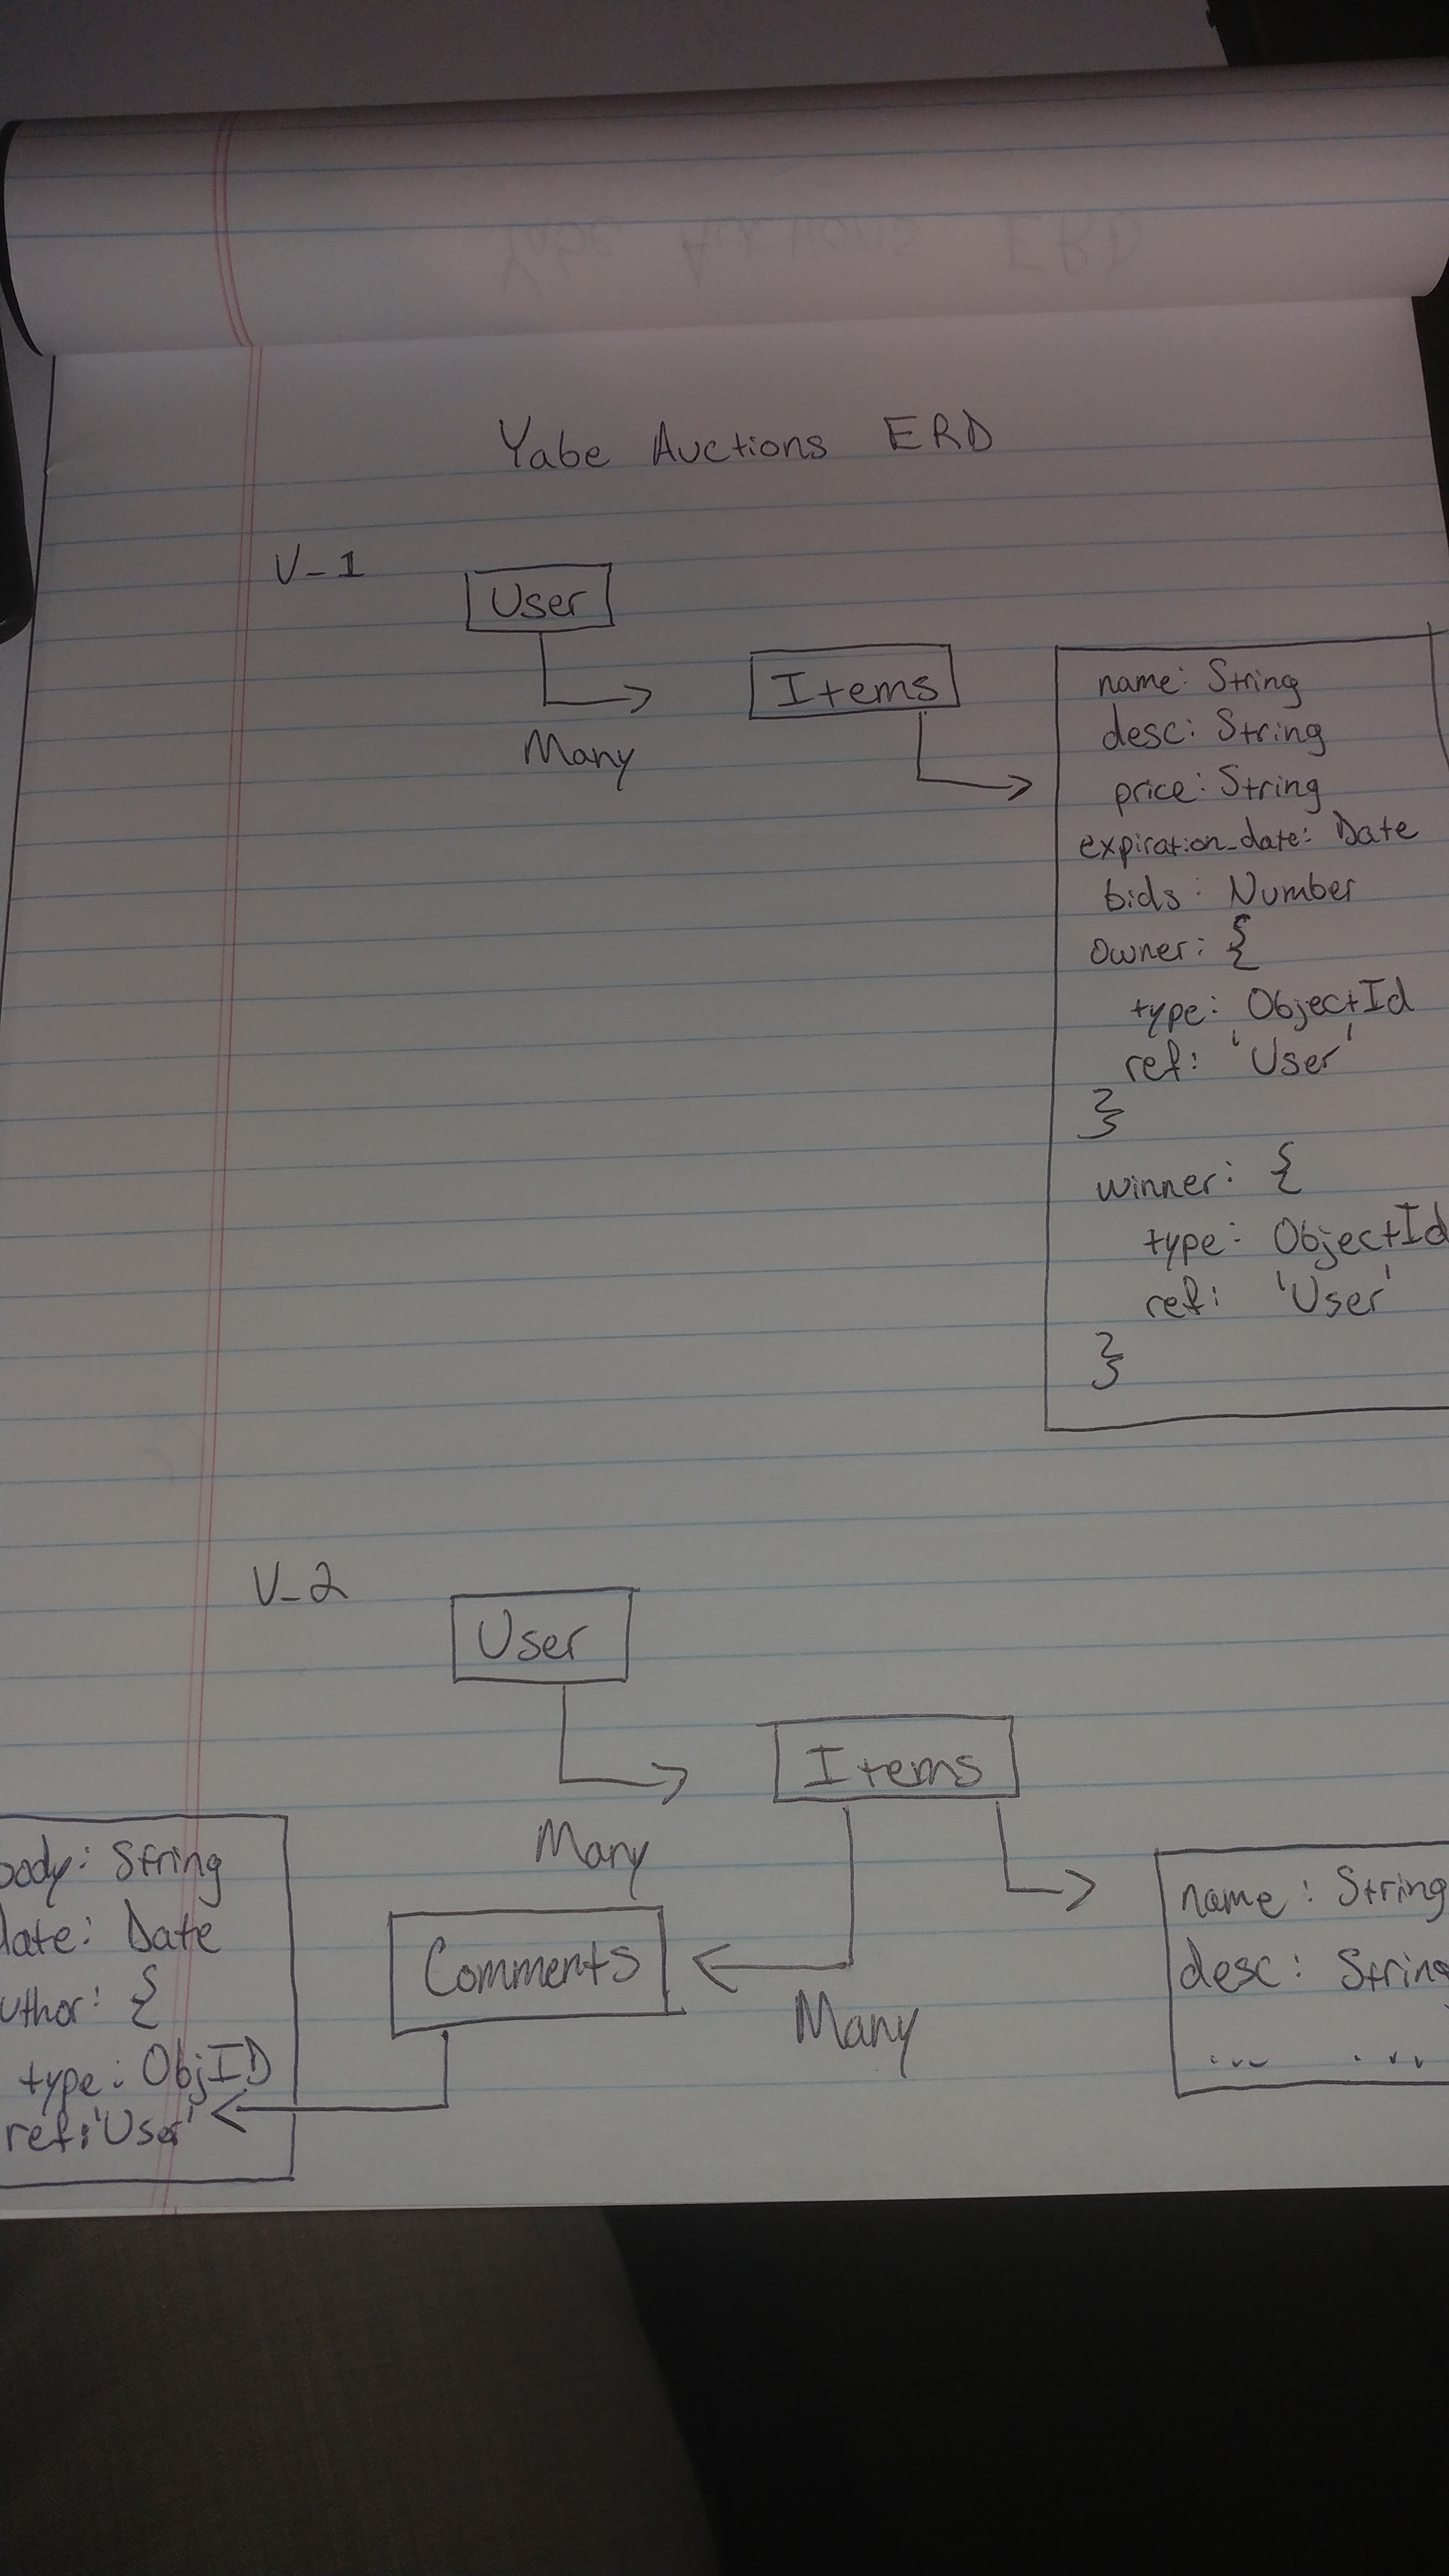 Yabe Auctions ERD
V_1
User
Many
Items
name: String
desc: String
price: String
expiration_date: Date
bids: Number
owner: {
type: ObjectId
ref: 'User'
}
winner: {
type: ObjectId
ref: 'User'
}
V_2
User
Many
Items
Many
name: String
desc: String
... ...
Comments
body: String
date: Date
uthor: {
type: ObjID
ref: 'User'